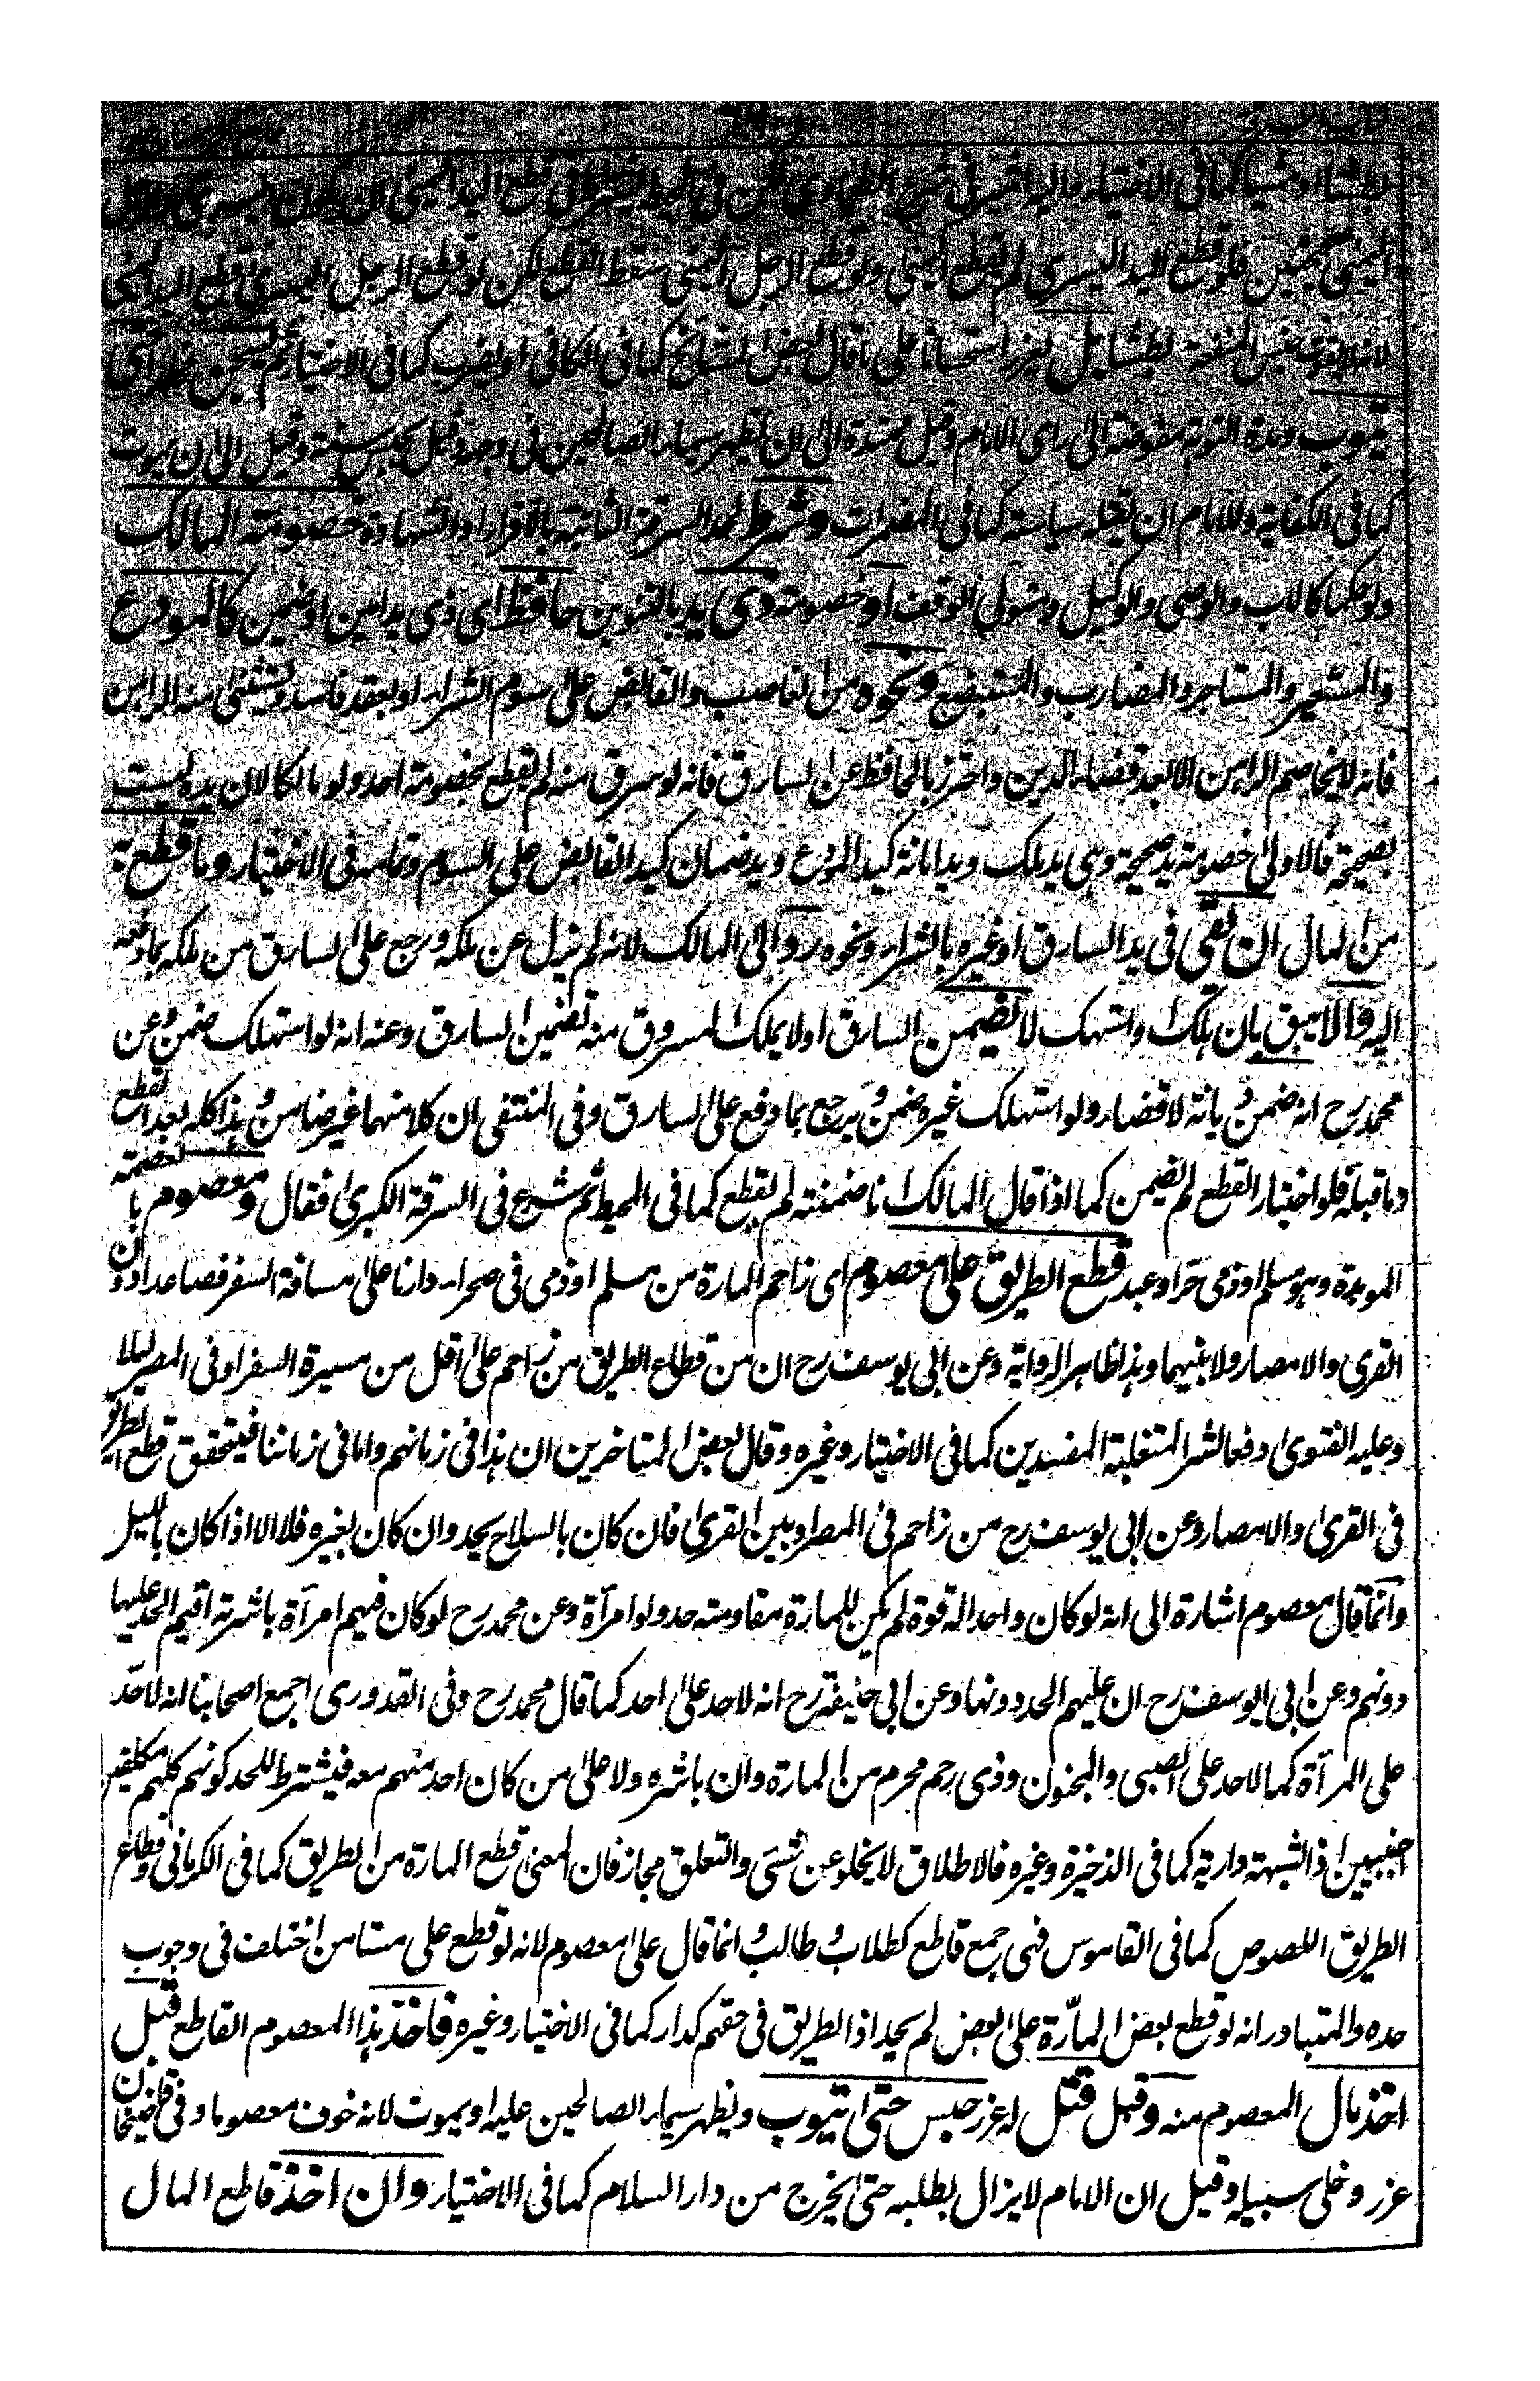 كتاب السرقة
بطشا او مشيا كما في الاختيار واليه اشير في شرح الطحاوي لكن في المحيط يشترط في قطع اليد اليمنى ان يكون اليسرى والرجل
اليمنى صحيحتين فلو قطع اليد اليسرى لم يقطع اليمنى ولو قطع الرجل اليمنى سقط القطع لكن لو قطع الرجل اليسرى قطع اليد اليمنى
لانه لا يفوت جنس المنفعة بطشا بل يعزر استحسانا على ما قال بعض المشائخ كما في الكافي او يضرب كما في الاختيار ثم يسجن حتى
يتوب ومدة التوبة مفوضة الى راى الامام وقيل ممتدة الى ان يظهر سيماء الصالحين في وجهه وقيل يحبس سنة وقيل الى ان يموت
كما في الكفاية وللامام ان يقتله سياسة كما في المضمرات وشرط لحد السرقة الثابتة بالاقرار او الشهادة خصومة المالك
ولو حكما كالاب والوصي والوكيل ومتولي الوقف او خصومة ذى يد بالتنوين حافظ اى ذى يد امين او ضمين كالمودع
والمستعير والمستاجر والمضارب والمستبضع ونحوه من الغاصب والقابض على سوم الشراء او بعقد فاسد ويستثنى منه الراهن
فانه لا يخاصم الراهن الا بعد قضاء الدين واحترز بالحافظ عن السارق فانه لو سرق منه لم يقطع بخصومة احد ولو مالكا لان يده ليست
بصحيحة فالاولى خصومة يد صحيحة وهى يد ملك ويد امانة كيد المودع ويد ضمان كيد القابض على السوم وتمامه فى الاختيار وما قطع به
من المال ان بقى فى يد السارق او غيره بالشراء ونحوه رد الى المالك لانه لم يزل عن ملكه ورجع على السارق من ملكه بما دفعه
اليه والا يبق بان هلك او استهلك لا يضمن السارق اولا يملك المسروق منه تضمين السارق وعنه انه لو استهلك ضمن وعن
محمد رح انه ضمن ديانة لا قضاء ولو استهلك غيره ضمن ويرجع بما دفع على السارق وفى المنتقى ان كلا منهما غير ضامن وهذا كله بعد القطع
وما قبله فلو اختار القطع لم يضمن كما اذا قال المالك انا ضمنته لم يقطع كما فى المحيط ثم شرع فى السرقة الكبرى فقال ومعصوم بالعصمة
الموبدة وهو مسلم او ذمى حر او عبد قطع الطريق على معصوم اى زاحم المارة من مسلم او ذمى فى صحراء دارنا على مسافة السفر فصاعدا دون
القرى والامصار ولا بينهما وهذا ظاهر الرواية وعن ابى يوسف رح ان من قطاع الطريق من زاحم على اقل من مسيرة السفر او فى المصر ليلا
وعليه الفتوى دفعا لشر المتغلبة المفسدين كما فى الاختيار وغيره وقال بعض المتاخرين ان هذا فى زمانهم واما فى زماننا فيتحقق قطع الطريق
فى القرى والامصار وعن ابى يوسف رح من زاحم فى المصر او بين القرى فان كان بالسلاح يحد وان كان بغيره فلا الا اذا كان بالليل
وانما قال معصوم اشارة الى انه لو كان واحدا له قوة لم يكن للمارة مقاومته حد ولو امرأة وعن محمد رح لو كان فيهم امرأة باشرته اقيم الحد عليها
دونهم وعن ابى يوسف رح ان عليهم الحد دونها وعن ابى حنيفة رح انه لا حد على احد كما قال محمد رح وفى القدورى اجمع اصحابنا انه لا حد
على المرأة كما لا حد على الصبى والمجنون وذى رحم محرم من المارة وان باشره ولا على من كان احد منهم معه فيشترط للحد كونهم كلهم مكلفين
اجنبيين اذ الشبهة دارية كما فى الذخيرة وغيره فالاطلاق لا يخلو عن شىء والتعلق مجاز فان المعنى قطع المارة من الطريق كما فى الكرمانى وقطاع
الطريق اللصوص كما فى القاموس فهى جمع قاطع كطلاب وطالب وانما قال على معصوم لانه لو قطع على مستامن اختلف فى وجوب
حده والمتبادر انه لو قطع بعض المارة على البعض لم يحد اذ الطريق فى حقهم كدار كما فى الاختيار وغيره فاخذ هذا المعصوم القاطع قبل
اخذ مال المعصوم منه وقبل قتل له عزر حبس حتى يتوب ويظهر سيماء الصالحين عليه او يموت لانه خوف معصوما وفى قاضيخان
عزر وخلى سبيله وقيل ان الامام لا يزال يطلبه حتى يخرج من دار السلام كما فى الاختيار وان اخذ قاطع المال